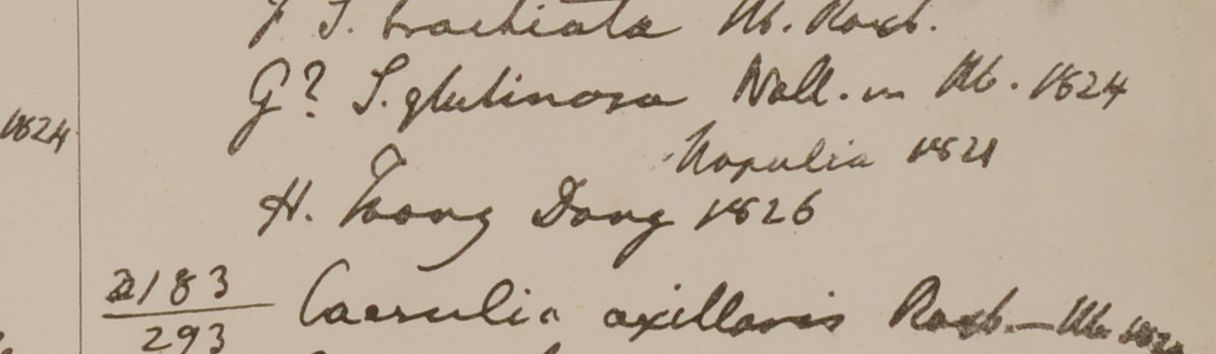 F S. brachiata Hb. Roxb.
G? S. glutinosa Wall. in Hb. 1824
1824
Napalia 1821
H. Toong Dong 1826
2183 Caesulia axillaris Roxb. — Hb.
293